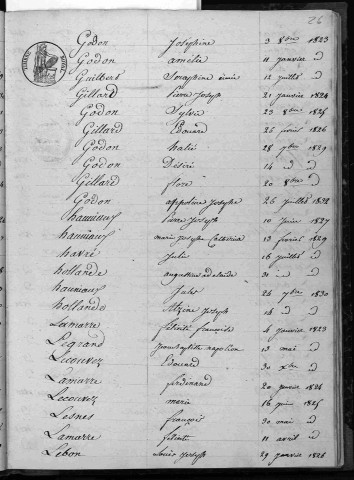 26
Godon Josephine 3 8bre 1823
Godon amélie 11 janvier d
Guilbert Seraphine aimée 12 juillet d
Gillard Pierre Joseph 21 janvier 1824
Godon Sylvie 23 8bre 1825
Gillard Edouard 25 avril 1826
Godon 28 7bre 1829
Godon Désiré 14 d d
Gillard flore 20 8bre d
Godon appoline Josephe 26 juillet 1832
hauviaux Pierre Joseph 10 juin 1827
hauviaux marie Josephe Catherine 13 février 1829
havré Julie 16 juillet d
hollande augustine adelaide 31 d d
hauviaux Jules 24 9bre 1830
hollande Joseph 14 d d
Lamarre felicité françoise 4 janvier 1823
Legrand Jean baptiste napoléon 13 mai d
Lecouvez Edouard 30 Xbre d
Lamarre ferdinand 20 janvier 1824
Lecouvez marie 16 juin 1825
Lesnes françois 30 mai d
Lamarre felicité 11 avril d
Lebon Louis Joseph 29 janvier 1826